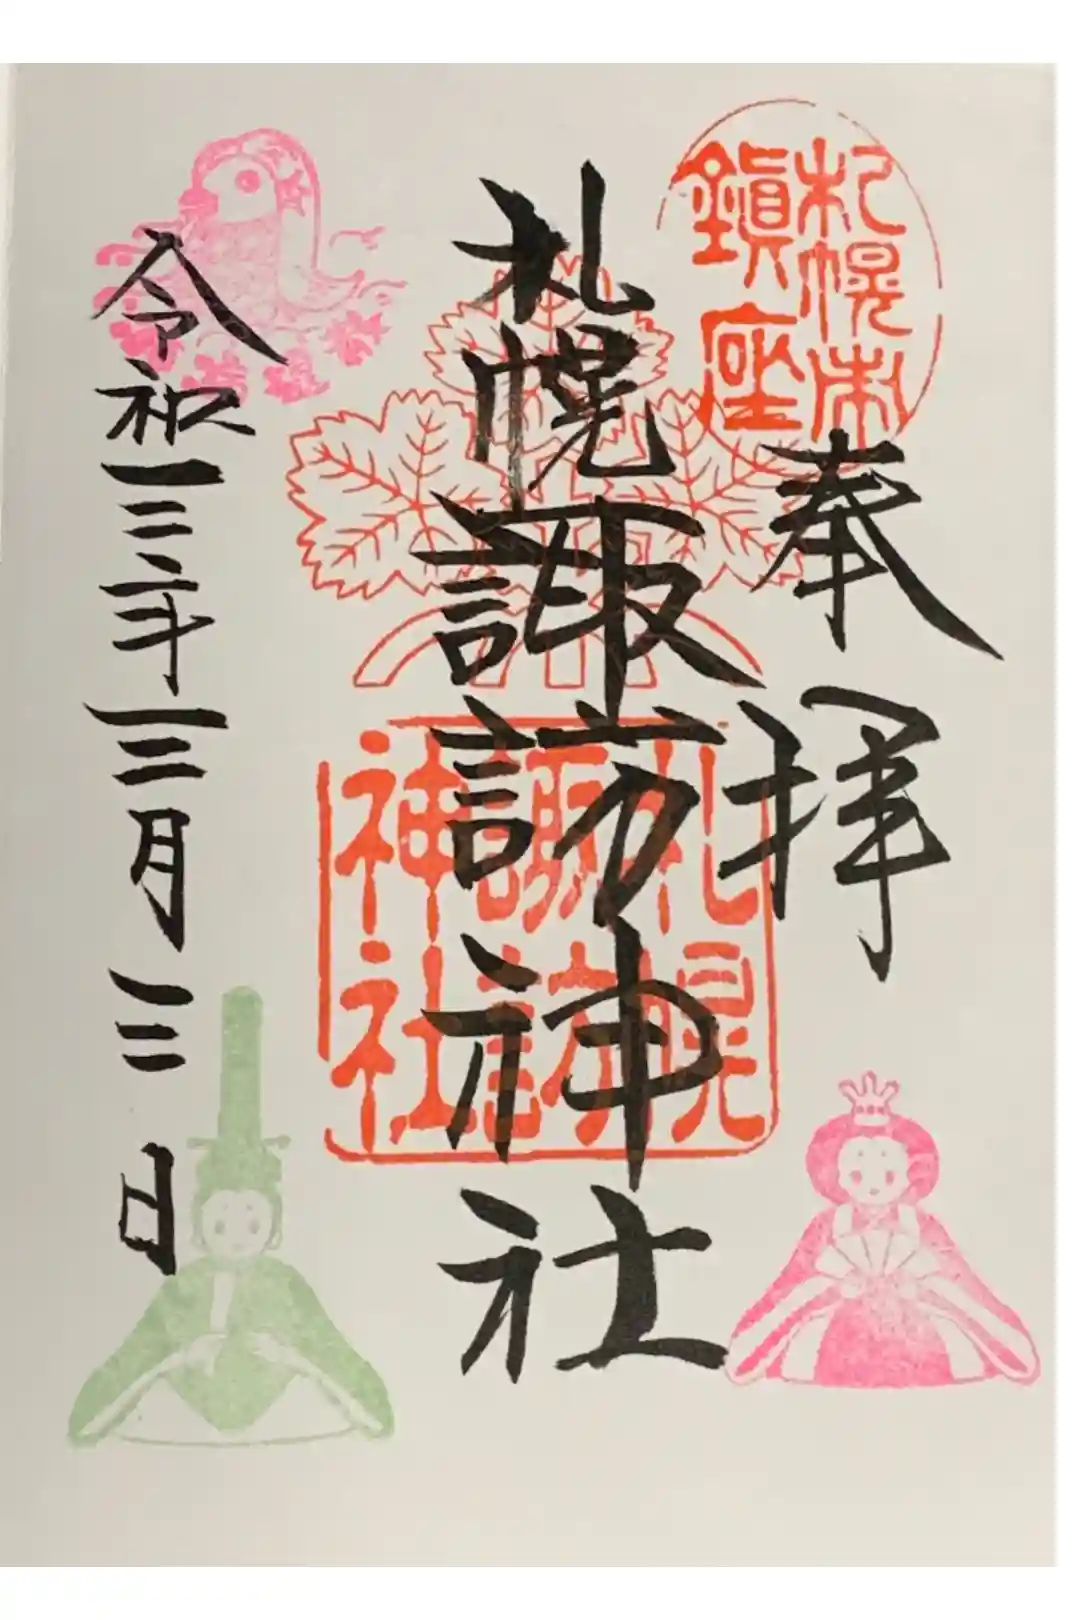 札幌市
鎭座
奉拝
札幌諏訪神社
札幌
諏訪
神社
令和三年三月三日